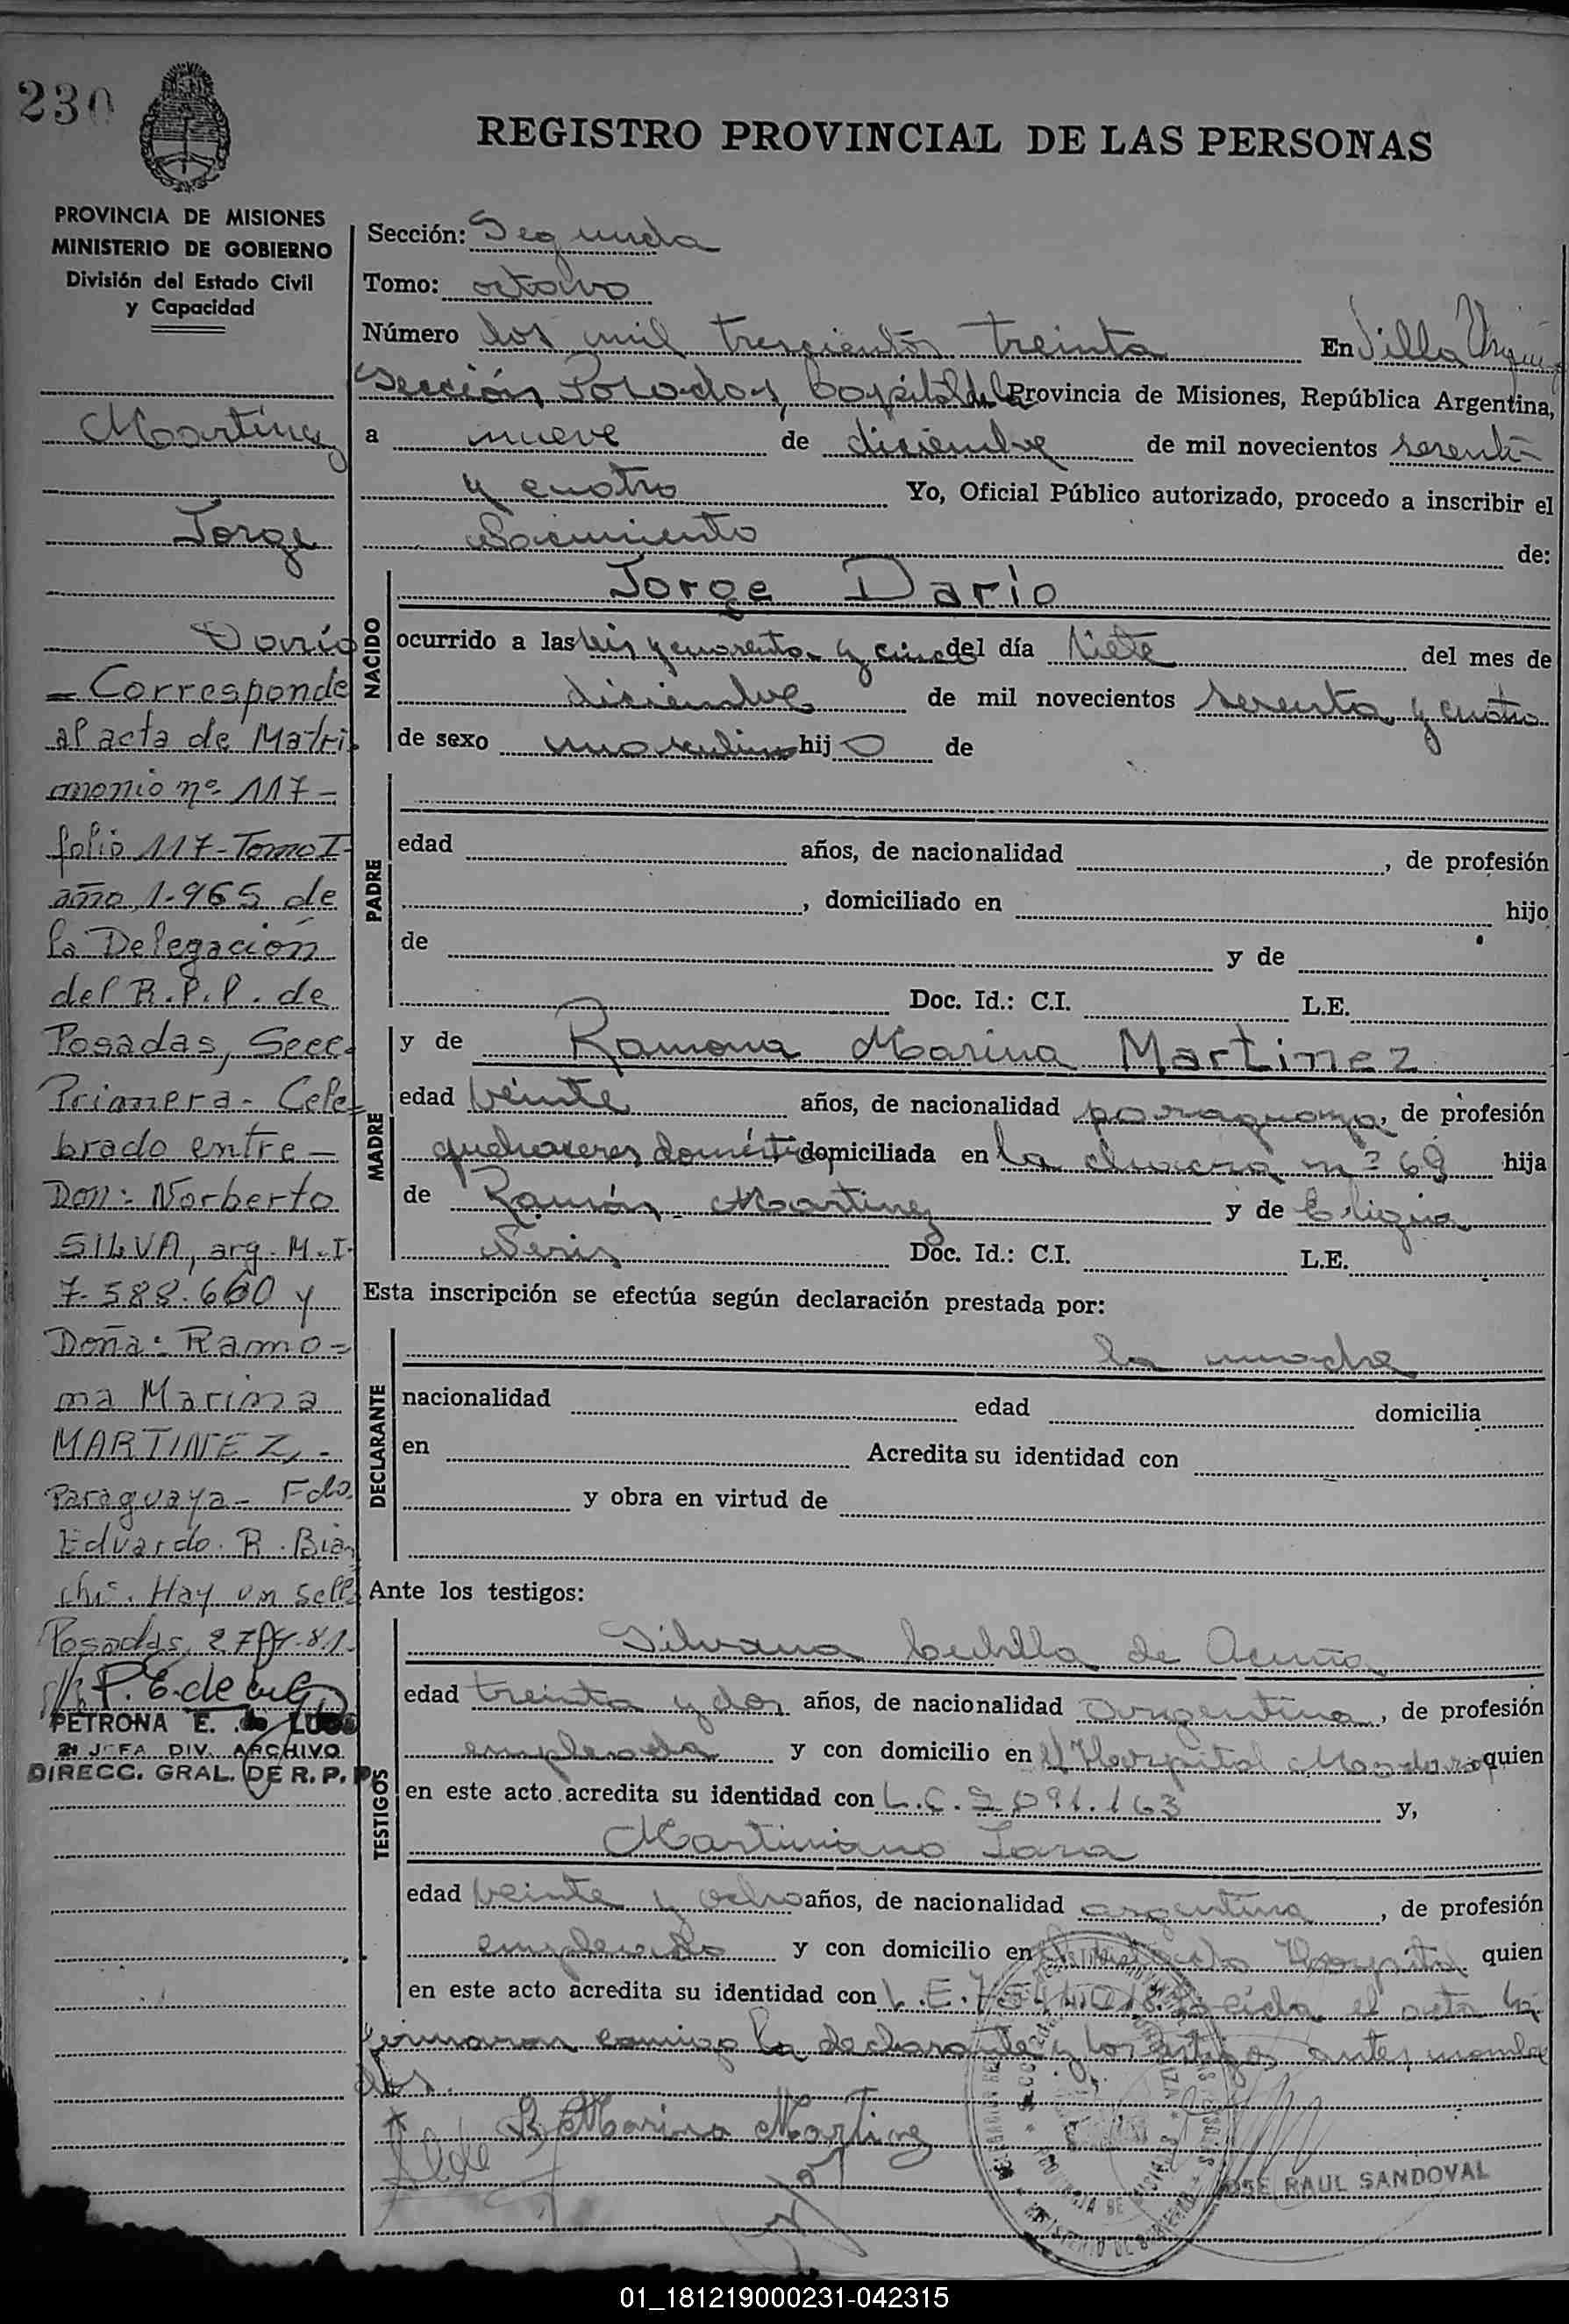 230
REGISTRO PROVINCIAL DE LAS PERSONAS
PROVINCIA DE MISIONES
MINISTERIO DE GOBIERNO
División del Estado Civil
y Capacidad
Martinez
Jorge
Darío
= Corresponde
al acta de Matri
monio nº 117 -
folio 117 - Tomo I -
año 1.965 de
la Delegación
del R.P.P. de
Posadas, Secc.
Primera - Cele-
brado entre -
Don: Norberto
SILVA, arg. M.I.
7.588.660 y
Doña: Ramo=
na Marina
MARTINEZ, -
Paraguaya - Fdo.
Eduardo R. Bian
chi. Hay un sello
Posadas, 27
P. E. de
PETRONA E. de LUGO
JEFA DIV. ARCHIVO
DIRECC. GRAL. DE R. P. P.
Sección: Segunda
Tomo: octavo
Número dos mil trescientos treinta En Villa Urquiza
Sección Posadas, Capital de la Provincia de Misiones, República Argentina,
a nueve de diciembre de mil novecientos sesenta
y cuatro Yo, Oficial Público autorizado, procedo a inscribir el
Nacimiento de:
NACIDO
Jorge Dario
ocurrido a las seis y cuarenta y cinco del día siete del mes de
diciembre de mil novecientos sesenta y cuatro
de sexo masculino hijo de
PADRE
edad años, de nacionalidad , de profesión
, domiciliado en hijo
de y de
Doc. Id.: C.I. L.E.
MADRE
y de Ramona Marina Martinez
edad veinte años, de nacionalidad paraguaya, de profesión
quehaceres domésticos domiciliada en la chacra nº 69 hija
de Ramón Martinez y de Eligia
Doc. Id.: C.I. L.E.
Esta inscripción se efectúa según declaración prestada por:
DECLARANTE
la madre
nacionalidad edad domicilia
en Acredita su identidad con
y obra en virtud de
Ante los testigos:
TESTIGOS
Silvana de Acuña
edad treinta y dos años, de nacionalidad argentina, de profesión
empleada y con domicilio en el Hospital Madariaga quien
en este acto acredita su identidad con L.C. 2.091.163 y,
Martiniano Jara
edad veinte y ocho años, de nacionalidad argentina, de profesión
empleado y con domicilio en Hospital quien
en este acto acredita su identidad con L.E. Leida el acta la
firmaron conmigo la declarante y los testigos antes nombra
dos.
R. Marina Martinez
JOSE RAUL SANDOVAL
01_181219000231-042315